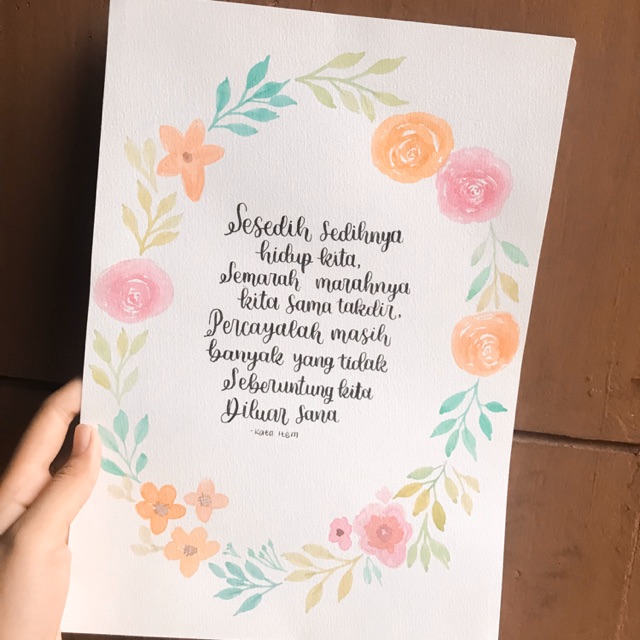 Sesedih sedihnya
hidup kita,
Semarah marahnya
kita sama takdir,
Percayalah masih
banyak yang tidak
Seberuntung kita
Diluar sana
-Kata Item